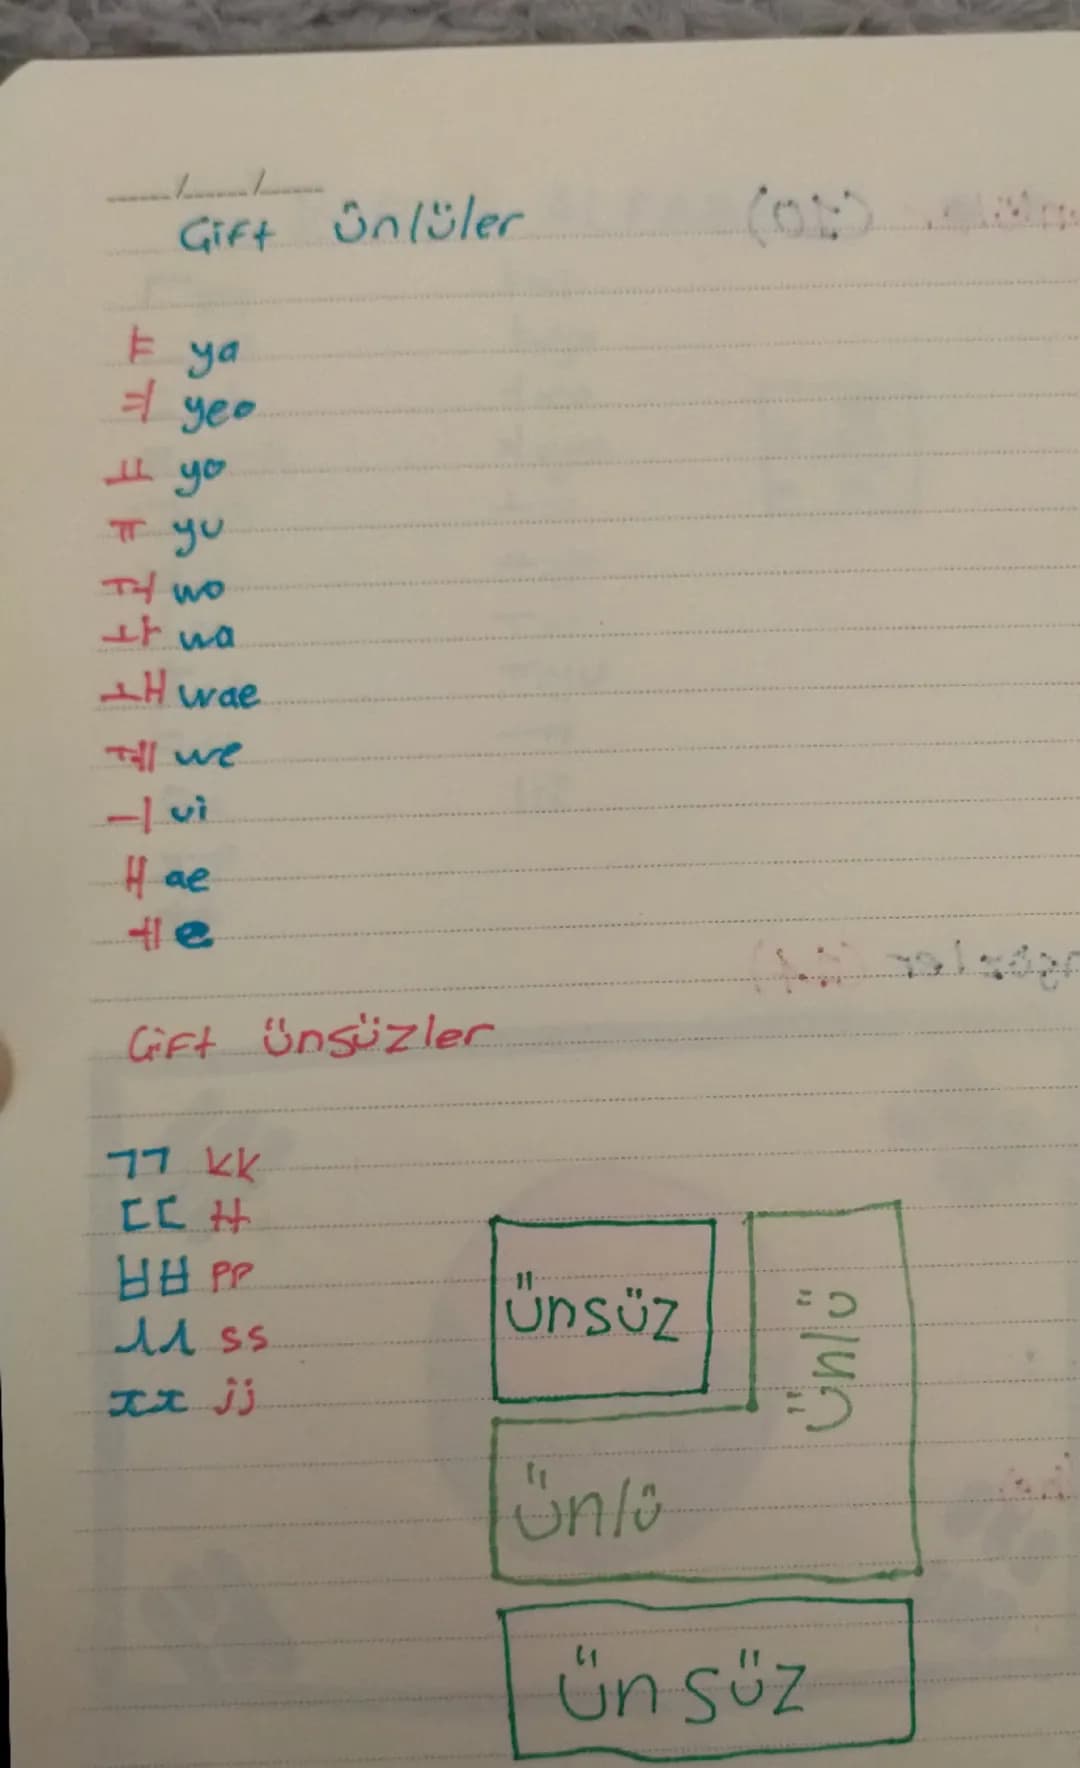 Çift ünlüler
ㅑ ya
ㅕ yeo
ㅛ yo
ㅠ yu
ㅝ wo
ㅘ wa
ㅙ wae
ㅞ we
ㅢ ui
ㅐ ae
ㅔ e
Çift ünsüzler
ㄲ kk
ㄸ tt
ㅃ pp
ㅆ ss
ㅉ jj
ünsüz
ünlü
ünlü
ünsüz